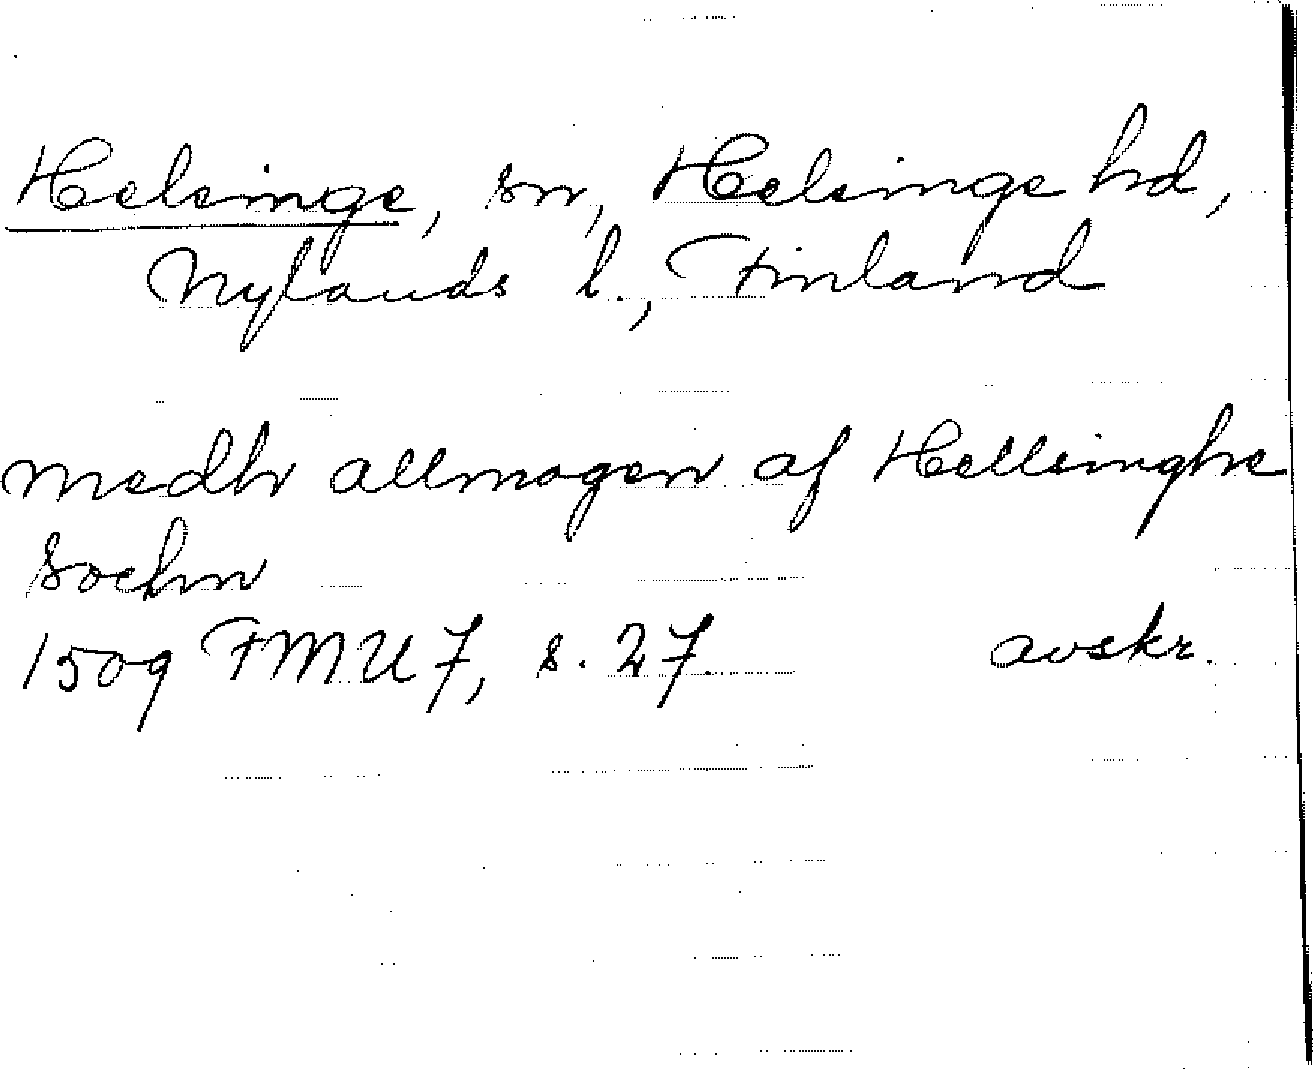 Helsinge, sn, Helsinge hd,
Nylands l., Finland
medh allmogen af Hellsinghe
sochn
1509 FMU 7, s. 27. avskr.